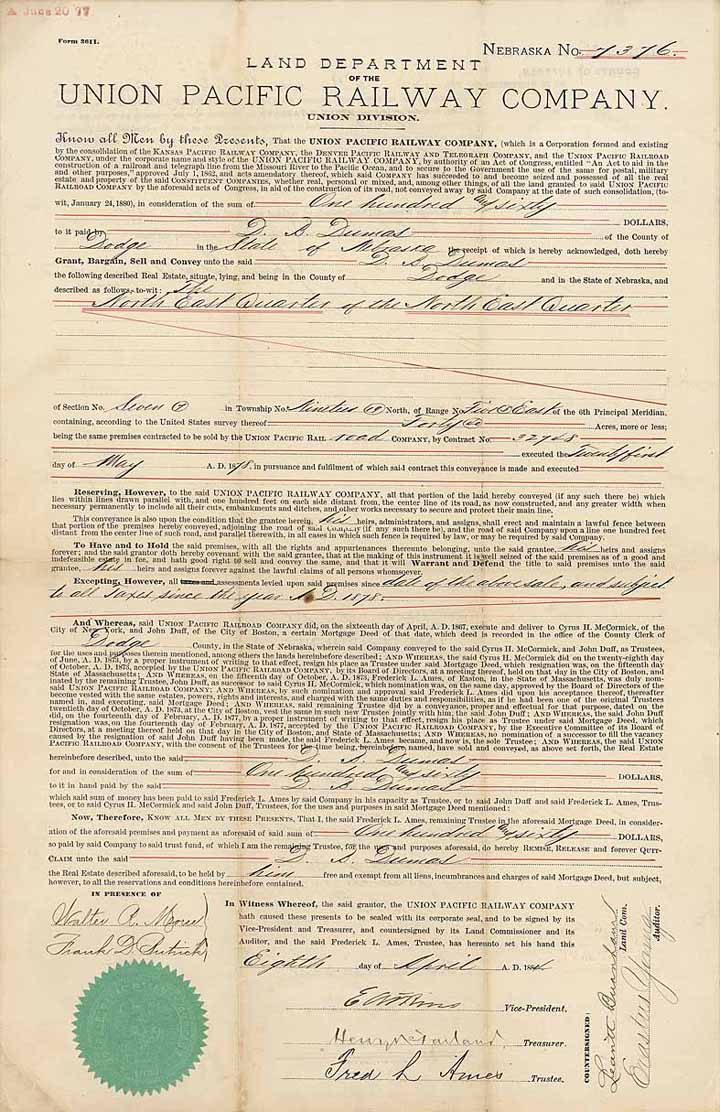 June 20 77
Form 3611.
NEBRASKA No. 7376.
LAND DEPARTMENT
OF THE
UNION PACIFIC RAILWAY COMPANY.
UNION DIVISION.
Know all Men by these Presents, That the UNION PACIFIC RAILWAY COMPANY, (which is a Corporation formed and existing
by the consolidation of the KANSAS PACIFIC RAILWAY COMPANY, the DENVER PACIFIC RAILWAY AND TELEGRAPH COMPANY, and the UNION PACIFIC RAILROAD
COMPANY, under the corporate name and style of the UNION PACIFIC RAILWAY COMPANY, by authority of an Act of Congress, entitled "An Act to aid in the
construction of a railroad and telegraph line from the Missouri River to the Pacific Ocean, and to secure to the Government the use of the same for postal, military
and other purposes," approved July 1, 1862, and acts amendatory thereof, which said COMPANY has succeeded to and become seized and possessed of all the real
estate and property of the said CONSTITUENT COMPANIES, whether real, personal or mixed, and, among other things, of all the land granted to said UNION PACIFIC
RAILROAD COMPANY by the aforesaid acts of Congress, in aid of the construction of its road, not conveyed away by said Company at the date of such consolidation, (to-
wit, January 24, 1880), in consideration of the sum of One hundred & sixty
DOLLARS,
to it paid by D. S. Dumas of the County of
Dodge in the State of Nebraska the receipt of which is hereby acknowledged, doth hereby
Grant, Bargain, Sell and Convey unto the said D. S. Dumas
the following described Real Estate, situate, lying, and being in the County of Dodge and in the State of Nebraska, and
described as follows, to-wit: The
North East Quarter of the North East Quarter
of Section No. Seven (7) in Township No. Nineteen (19) North, of Range No. Five (5) East of the 6th Principal Meridian,
containing, according to the United States survey thereof Forty (40) Acres, more or less;
being the same premises contracted to be sold by the UNION PACIFIC RAIL road COMPANY, by Contract No. 32748
executed the Twenty first
day of May A. D. 1878, in pursuance and fulfilment of which said contract this conveyance is made and executed
Reserving, However, to the said UNION PACIFIC RAILWAY COMPANY, all that portion of the land hereby conveyed (if any such there be) which
lies within lines drawn parallel with, and one hundred feet on each side distant from, the center line of its road, as now constructed, and any greater width when
necessary permanently to include all their cuts, embankments and ditches, and other works necessary to secure and protect their main line.
This conveyance is also upon the condition that the grantee herein, his heirs, administrators, and assigns, shall erect and maintain a lawful fence between
that portion of the premises hereby conveyed, adjoining the road of said Company (if any such there be), and the road of said Company upon a line one hundred feet
distant from the center line of such road, and parallel therewith, in all cases in which such fence is required by law, or may be required by said Company.
To Have and to Hold the said premises, with all the rights and appurtenances thereunto belonging, unto the said grantee, his heirs and assigns
forever; and the said grantor doth hereby covenant with the said grantee, that at the making of this instrument it is well seized of the said premises as of a good and
indefeasible estate in fee, and hath good right to sell and convey the same, and that it will Warrant and Defend the title to said premises unto the said
grantee, his heirs and assigns forever against the lawful claims of all persons whomsoever.
Excepting, However, all taxes and assessments levied upon said premises since date of the above sale, and subject
to all Taxes since the year A. D. 1878.
And Whereas, said UNION PACIFIC RAILROAD COMPANY did, on the sixteenth day of April, A. D. 1867, execute and deliver to Cyrus H. McCormick, of the
City of New York, and John Duff, of the City of Boston, a certain Mortgage Deed of that date, which deed is recorded in the office of the County Clerk of
Dodge County, in the State of Nebraska, wherein said Company conveyed to the said Cyrus H. McCormick, and John Duff, as Trustees,
for the uses and purposes therein mentioned, among others the lands hereinbefore described; AND WHEREAS, the said Cyrus H. McCormick did on the twenty-eighth day
of June, A. D. 1873, by a proper instrument of writing to that effect, resign his place as Trustee under said Mortgage Deed, which resignation was, on the fifteenth day
of October, A. D. 1873, accepted by the UNION PACIFIC RAILROAD COMPANY, by its Board of Directors, at a meeting thereof, held on that day in the City of Boston, and
State of Massachusetts; AND WHEREAS, on the fifteenth day of October, A. D. 1873, Frederick L. Ames, of Boston, in the State of Massachusetts, was duly nom-
inated by the remaining Trustee, John Duff, as successor to said Cyrus H. McCormick, which nomination was, on the same day, approved by the Board of Directors of the
said UNION PACIFIC RAILROAD COMPANY; AND WHEREAS, by such nomination and approval said Frederick L. Ames did upon his acceptance thereof, thereafter
become vested with the same estates, powers, rights and interests, and charged with the same duties and responsibilities, as if he had been one of the original Trustees
named in, and executing, said Mortgage Deed; AND WHEREAS, said remaining Trustee did by a conveyance, proper and effectual for that purpose, dated on the
twentieth day of October, A. D. 1873, at the City of Boston, vest the same in such new Trustee jointly with him, the said John Duff; AND WHEREAS, the said John Duff
did, on the fourteenth day of February, A. D. 1877, by a proper instrument of writing to that effect, resign his place as Trustee under said Mortgage Deed, which
resignation was, on the fourteenth day of February, A. D. 1877, accepted by the UNION PACIFIC RAILROAD COMPANY, by the Executive Committee of its Board of
Directors, at a meeting thereof held on that day in the City of Boston, and State of Massachusetts; AND WHEREAS, no nomination of a successor to fill the vacancy
caused by the resignation of said John Duff having been made, the said Frederick L. Ames became, and now is, the sole Trustee; AND WHEREAS, the said UNION
PACIFIC RAILROAD COMPANY, with the consent of the Trustees for the time being, hereinbefore named, have sold and conveyed, as above set forth, the Real Estate
hereinbefore described, unto the said D. S. Dumas
for and in consideration of the sum of One hundred & sixty DOLLARS,
to it in hand paid by the said D. S. Dumas
which said sum of money has been paid to said Frederick L. Ames by said Company in his capacity as Trustee, or to said John Duff and said Frederick L. Ames, Trus-
tees, or to said Cyrus H. McCormick and said John Duff, Trustees, for the uses and purposes in said Mortgage Deed mentioned:
Now, Therefore, KNOW ALL MEN BY THESE PRESENTS, That I, the said Frederick L. Ames, remaining Trustee in the aforesaid Mortgage Deed, in consider-
ation of the aforesaid premises and payment as aforesaid of said sum of One hundred & sixty DOLLARS,
so paid by said Company to said trust fund, of which I am the remaining Trustee, for the uses and purposes aforesaid, do hereby REMISE, RELEASE and forever QUIT-
CLAIM unto the said D. S. Dumas
the Real Estate described aforesaid, to be held by him free and exempt from all liens, incumbrances and charges of said Mortgage Deed, but subject,
however, to all the reservations and conditions hereinbefore contained.
IN PRESENCE OF
Walter R. Morse
Frank D.
In Witness Whereof, the said grantor, the UNION PACIFIC RAILWAY COMPANY
hath caused these presents to be sealed with its corporate seal, and to be signed by its
Vice-President and Treasurer, and countersigned by its Land Commissioner and its
Auditor, and the said Frederick L. Ames, Trustee, has hereunto set his hand this
Eighth day of April A. D. 188
E Atkins Vice-President.
Henry McFarland, Treasurer.
Fred L Ames Trustee.
COUNTERSIGNED:
Leavitt Burnham Land Com.
Erastus Young Auditor.